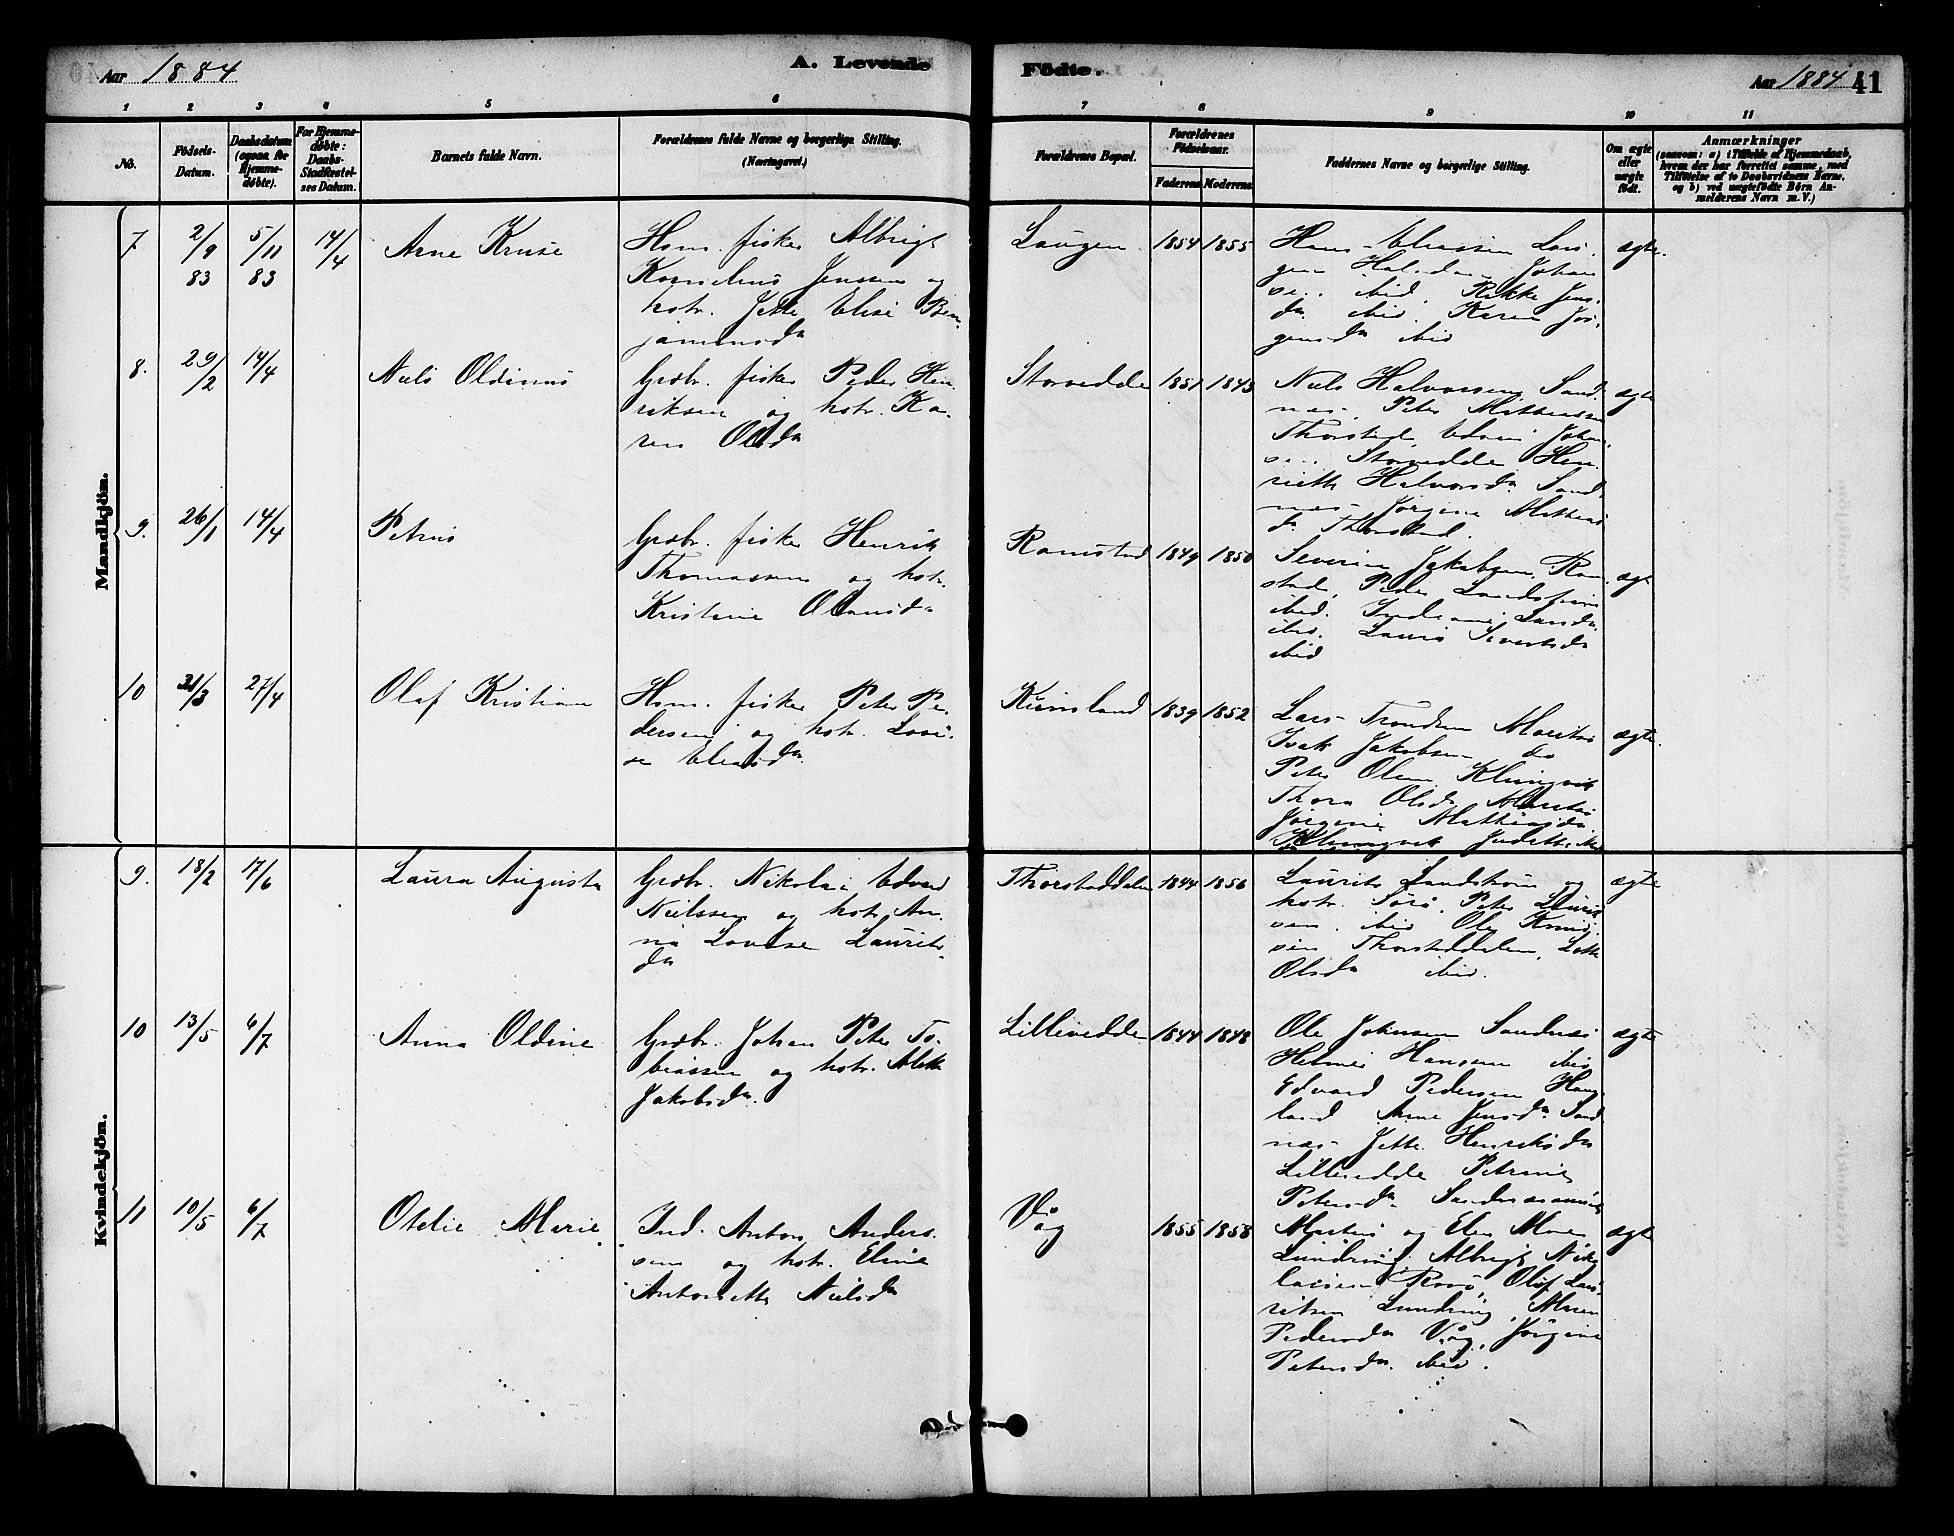 Aar 1884
A. Levende
Födte.
Aar 1884 41
1 2 3 4 5 6 7 8 9 10 11
No.
Födsels-
Datum.
Daabsdatum
(ogsaa for
Hjemme-
döbte).
For Hjemme-
döbte:
Daabs-
Stadfæstel-
ses Datum.
Barnets fulde Navn.
Forældrenes fulde Navne og borgerlige Stilling.
(Næringsvei.)
Forældrenes Bopæl.
Forældrenes
Födselsaar.
Faderens Moderens
Faddernes Navne og borgerlige Stilling.
Om ægte
eller
uægte
født.
Anmærkninger
(saasom: a) i Tilfælde af Hjemmedaab,
hvem der har forrettet samme, med
Tilföielse af to Daabsvidners Navne,
og b) ved uægtefödte Börn An-
melderens Navn m. V.)
Mandkjön.
7. 2/9 83 5/11 83 14/4
Arne Kruse
Hsm. fisker Albrigt
Kornelius Jenssen og
hstr. Jette Elise Ben-
jaminsdr
Laugen 1854 1855
Hans Eliassen Lau-
gen Johan
sen ibid. Rikke Jens-
dr ibid. Karen Jör-
gensdr ibid
ægte.
8. 29/2 14/4
Nils Oldinus
Grdbr. fisker Peder Hen-
riksen og hstr. Ka-
ren Olsdr
Storvedde 1851 1843
Niels Halvorsen Sand-
næs, Peter Mathiassen
Thorstad, Edvin Johan-
sen Storvedde Hen-
riette Halvorsdr Sand-
næs Jörgine Mathias
dr Thorstad.
ægte
9. 26/1 14/4
Petrus
Grdbr. fisker Henrik
Thomassen og hstr.
Kristine Olausdr
Ramstad 1849 1850
Severin Jakobsen Ram-
stad, Peder
ibid.
ibid. Laura Sivertsdr
ibid
ægte
10 31/3 27/4
Olaf Kristian
Hsm. fisker Peter Pe-
dersen og hstr. Lovi-
se Eliasdr
1839 1852
Lars Trondsen
Isak Jakobsen do
Peter Olsen Klungvik
Thora Olsdr
Jörgine Mathiasdr
Klungvik
ægte.
Kvindekjön.
9. 18/2 17/6
Laura Augusta
Grdbr. Nikolai Edvard
Nielssen og hstr. An-
na Lovise Laurits-
dr
Thorstaddalen 1844 1856
Laurits Landström og
hstr. Sörö, Peter Laurit-
sen ibid Ole Knud-
sen Thorstaddalen,
Olsdr ibid.
ægte
10 13/5 6/7
Anna Oldine
Grdbr. Johan Peter To-
biassen og hstr.
Jakobsdr.
Lillevedde 1844 1848
Ole Johnsen Sandnæs
Hansen ibid
Edvard Pedersen Haug-
land Arne Jensdr. Sand-
næs Jette Henriksdr
Lillevedde Petrine
Petersdr
ægte
11 10/5 6/7
Otelie Marie
Ind. Anton Anders-
sen og hstr. Eline
Antonette Nielsdr
Våg 1855 1858
Martin og Elen Maren
Lundring, Albrigt Niko-
laisen Olaf Lau-
ritsen Lundring Maren
Pedersdr Våg, Jörgine
Petersdr. ibid.
ægte